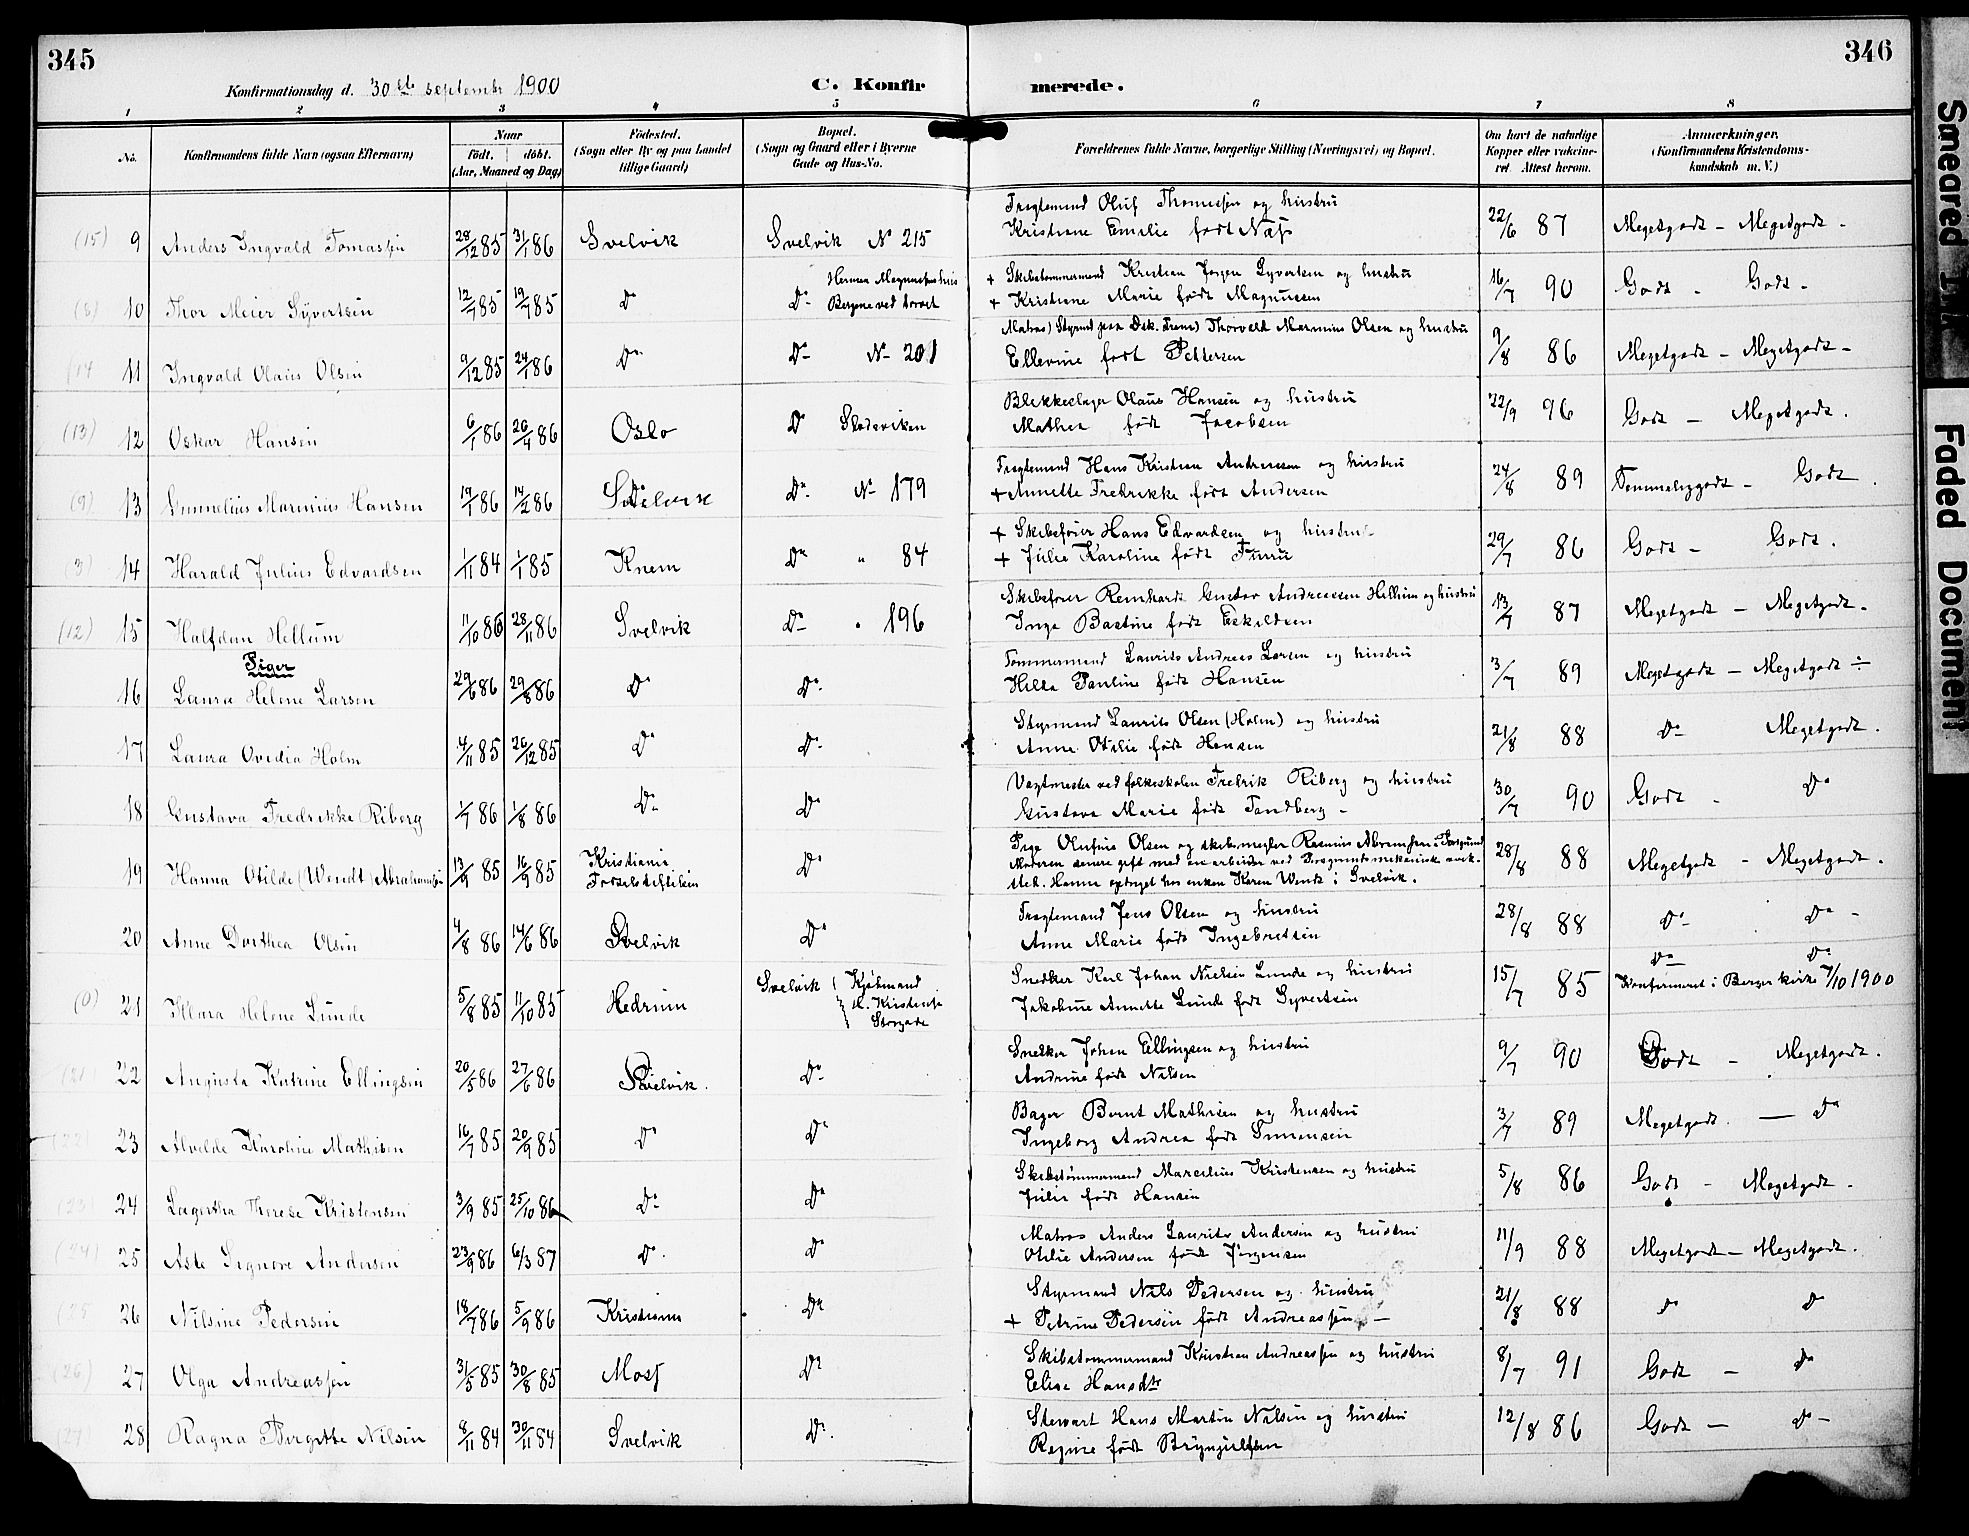 345
346
Konfirmationsdag d. 30te septembr 1900
C. Konfir
merede.
1 2 3 4 5 6 7 8
No.
Konfirmandens fulde Navn (ogsaa Efternavn)
Naar
födt. döbt.
(Aar, Maaned og Dag)
Födested.
(Sogn eller By og paa Landet
tillige Gaard)
Bopæl.
(Sogn og Gaard eller i Byerne
Gade og Hus-No.
Forældrenes fulde Navne, borgerlige Stilling (Næringsvei) og Bopæl.
Om havt de naturlige
Kopper eller vakcine-
ret Attest herom.
Anmærkninger.
(Konfirmandens Kristendoms-
kundskab m. V.)
(15) 9 Anders Ingvald Tomassen 28/12 85 31/1 86 Svelvik Svelvik No 215
Fragtemand Oluf Thomesen og hustru
Kristiane Emilie født Næss 22/6 87 Megetgodt - Megetgodt -
(8) 10 Thor Meier Syvertsen 12/7 85 19/7 85 Do Do Herman Magnusens hus
Bergene ved torvet
+ Skibstømmermand Kristian Jørgen Syvertsen og hustru
+ Kristiane Marie født Magnussen 16/7 90 Godt - Godt -
(14 11 Ingvald Olaus Olsen 9/12 85 24/1 86 Do Do No 201
Matros) Styrmd paa Dsk. Fremi) Thorvald Marinius Olsen og hustru
Ellevine født Pettersen 9/8 86 Megetgodt - Megetgodt -
(13) 12 Oskar Hansen 6/1 86 26/4 86 Oslo Do Stadsviken
Blikkeslager Olaus Hansen og hustru
Mathea født Jacobsen 22/9 96 Godt - Megetgodt.
(9) 13 Gunnelius Marinius Hansen 19/1 86 14/2 86 Svelvik Do No 179
Fragtemand Hans Kristian Andreassen og hustru
+ Annette Fredrikke født Andersen 24/8 89 Temmeliggodt - Godt.
3) 14 Harald Julius Edvardsen 1/11 84 1/1 85 Knem Do " 84
+ Skibsfører Hans Edvardsen og hustru
+ Julie Karoline født Furru 29/7 86 Godt - Godt.
(12) 15 Halfdan Hellum 11/10 86 28/11 86 Svelvik Do " 196
Skibsfører Reinhardt Gustav Andreassen Hellum og hustru
Inga Bastine født Eskildsen 13/7 87 Megetgodt - Megetgodt -
Piger
16 Laura Helene Larsen 29/6 86 29/8 86 Do Do
Tømmermand Laurits Andreas Larsen og hustru
Hilda Pauline født Hansen 3/7 89 Megetgodt - Megetgodt -
17 Laura Ovidia Holm 4/11 85 26/12 85 Do Do
Styrmand Laurits Olsen (Holm) og hustru
Anne Otilie født Hansen 21/8 88 Do Megetgodt.
18 Gustava Fredrikke Riberg 1/7 86 1/8 86 Do Do
Vagtmester ved folkeskolen Fredrik Riberg og hustru
Gustava Marie født Tandberg - 30/7 90 Godt - Do
19 Hanna Otilde (Wendt) Abrahamsen 13/9 85 16/9 85 Kristiania
Fødselsstiftelsen Do
Pige Olufine Olsen og skibsmegler Rasmus Abramsen i Porsgrund
Moderen senere gift med en arbeider ved Porsgrunds mekaniske verk-
sted. Hanna optaget hos enken Karen Wendt i Svelvik. 28/8 88 Megetgodt - Megetgodt.
20 Anne Dorthea Olsen 4/8 86 14/6 86 Svelvik Do
Fragtemand Jens Olsen og hustru
Anne Marie født Ingebretsen 28/8 88 Do Do -
(0) 21 Klara Helene Lunde 5/8 85 11/10 85 Hedrum Svelvik (Kjøbmand
H. Kristensen
Storgade
Snedker Karl Johan Nielsen Lunde og hustru
Jakobine Annette Lunde født Syvertsen 15/7 85 Do Do
Konfirmeret i Berger kirke 7/10 1900
(21) 22 Augusta Katrine Ellingsen 20/5 86 27/6 86 Svelvik. Do
Snedker Johan Ellingsen og hustru
Andrine født Nilsen 9/7 90 Godt - Megetgodt.
(22) 23 Alvilde Karoline Mathisen 16/7 85 20/9 85 Do Do
Bager Bernt Mathisen og hustru
Ingeborg Andrea født Simensen 3/7 89 Megetgodt. - Do
(23) 24 Lagertha Therese Kristensen 3/9 85 25/10 86 Do Do
Skibstømmermand Marcelius Kristensen og hustru
Julie født Hansen 5/8 86 Godt - Megetgodt -
(24) 25 Aste Signore Andersen 23/9 86 6/3 87 Do Do
Matros Anders Laurits Andersen og hustru
Otilie Andersen født Jørgensen 11/9 88 Megetgodt - Megetgodt.
(25 26 Nilsine Pedersen 18/7 86 5/9 86 Kristiania Do
Styrmand Nils Pedersen og hustru
+ Petrine Pedersen født Andreassen - 21/8 88 Do Do
(26) 27 Olga Andreassen 31/5 85 30/8 85 Moss Do
Skibstømmermand Kristian Andreassen og hustru
Elise Hansdtr 8/7 91 Godt - Do
(27) 28 Ragna Birgitte Nilsen 8/11 84 30/11 84 Svelvik Do
Stewart Hans Martin Nilsen og hustru
Regine født Brynjulfsen 12/8 86 Godt - Do -
Smeared Ink
Faded Document